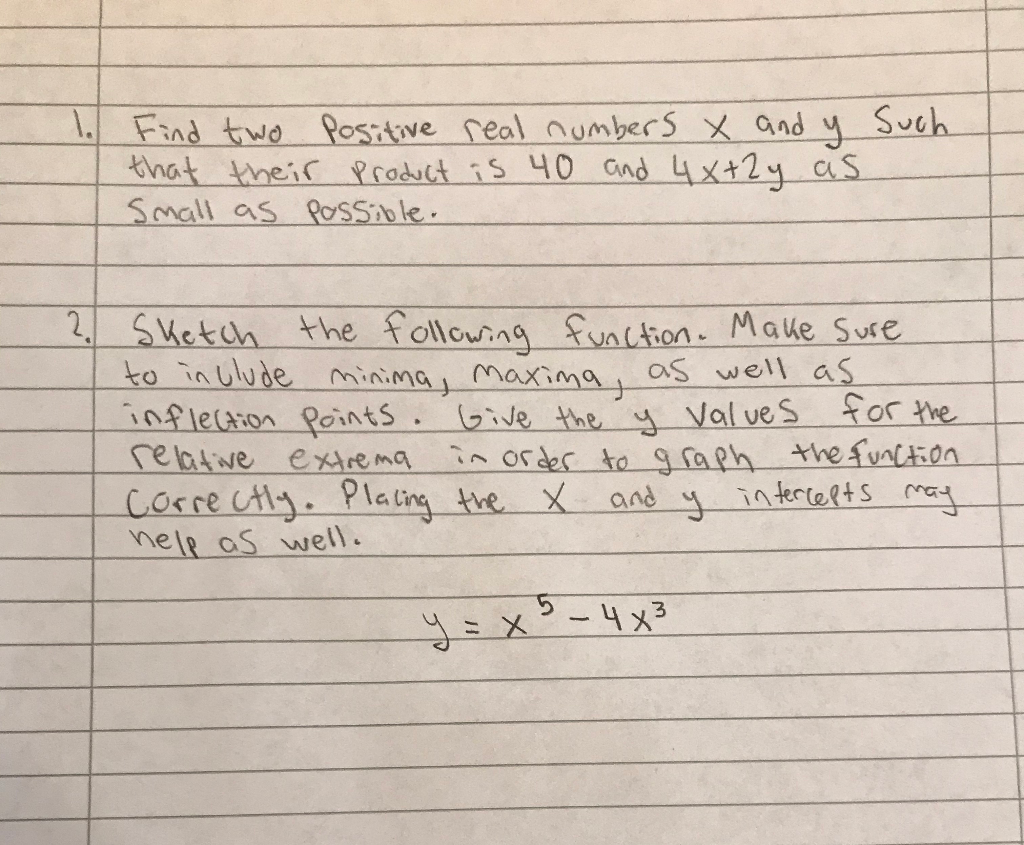 1. Find two Positive real numbers x and y Such
that their Product is 40 and 4x+2y as
Small as Possible.
2. Sketch the following function. Make Sure
to include minima, maxima, as well as
inflection points. Give the y values for the
relative extrema in order to graph the function
Correctly. Placing the x and y intercepts may
help as well.
y = x⁵ - 4x³